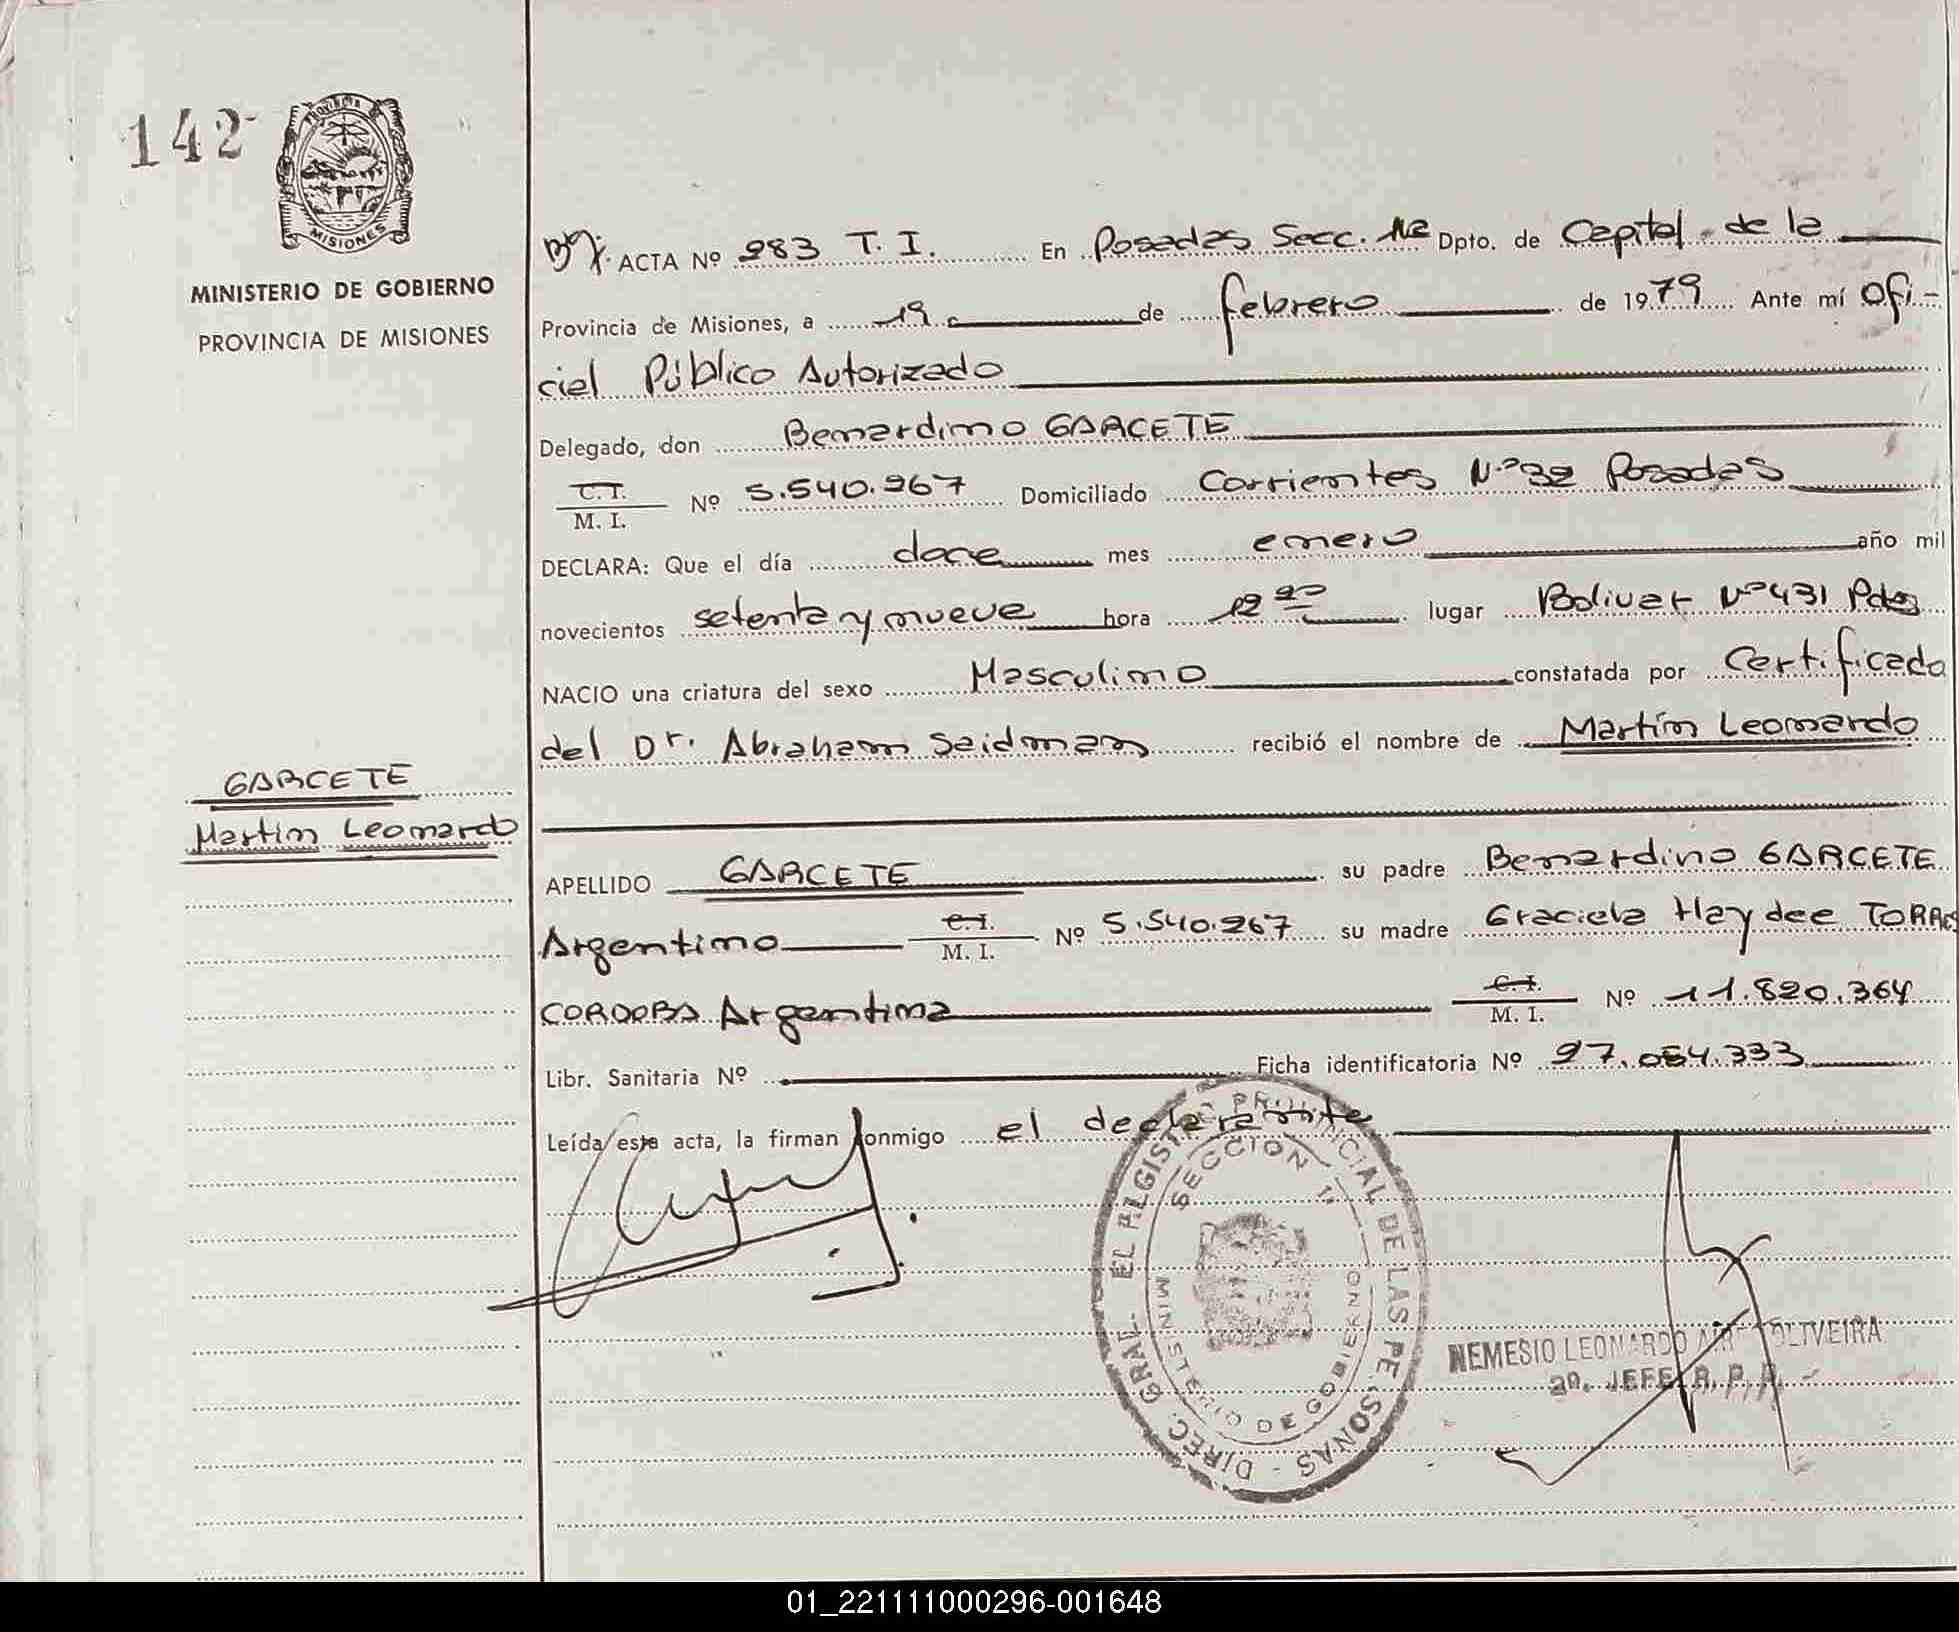 142
Provincia
MISIONES
MINISTERIO DE GOBIERNO
PROVINCIA DE MISIONES
ACTA Nº 283 T. I. En Posadas Secc. 1ra Dpto. de Capital - de la
Provincia de Misiones, a 19 de febrero de 1979 Ante mí Ofi-
cial Público Autorizado
Delegado, don Bernardino GARCETE
C.I.
M. I. Nº 5.540.267 Domiciliado Corrientes Nº 32 Posadas
DECLARA: Que el día doce mes enero año mil
novecientos setenta y nueve hora 12 20 lugar Bolivar Nº 431 Pdas
NACIO una criatura del sexo Masculino constatada por Certificado
del Dr. Abraham Seidman recibió el nombre de Martín Leonardo
GARCETE
Martin Leonardo
APELLIDO GARCETE su padre Bernardino GARCETE
Argentino C.I. M. I. Nº 5.540.267 su madre Graciela Haydee TORRES
CORDOBA Argentina C.I. M. I. Nº 11.820.364
Libr. Sanitaria Nº Ficha identificatoria Nº 27.054.333
Leída esta acta, la firman conmigo el declarante
DIREC. GRAL. EL REGISTRO PROVINCIAL DE LAS PERSONAS -
SECCION 1ª
MINISTERIO DE GOBIERNO
NEMESIO LEONARDO OLIVEIRA
2º. JEFE R. P. P.
01_221111000296-001648